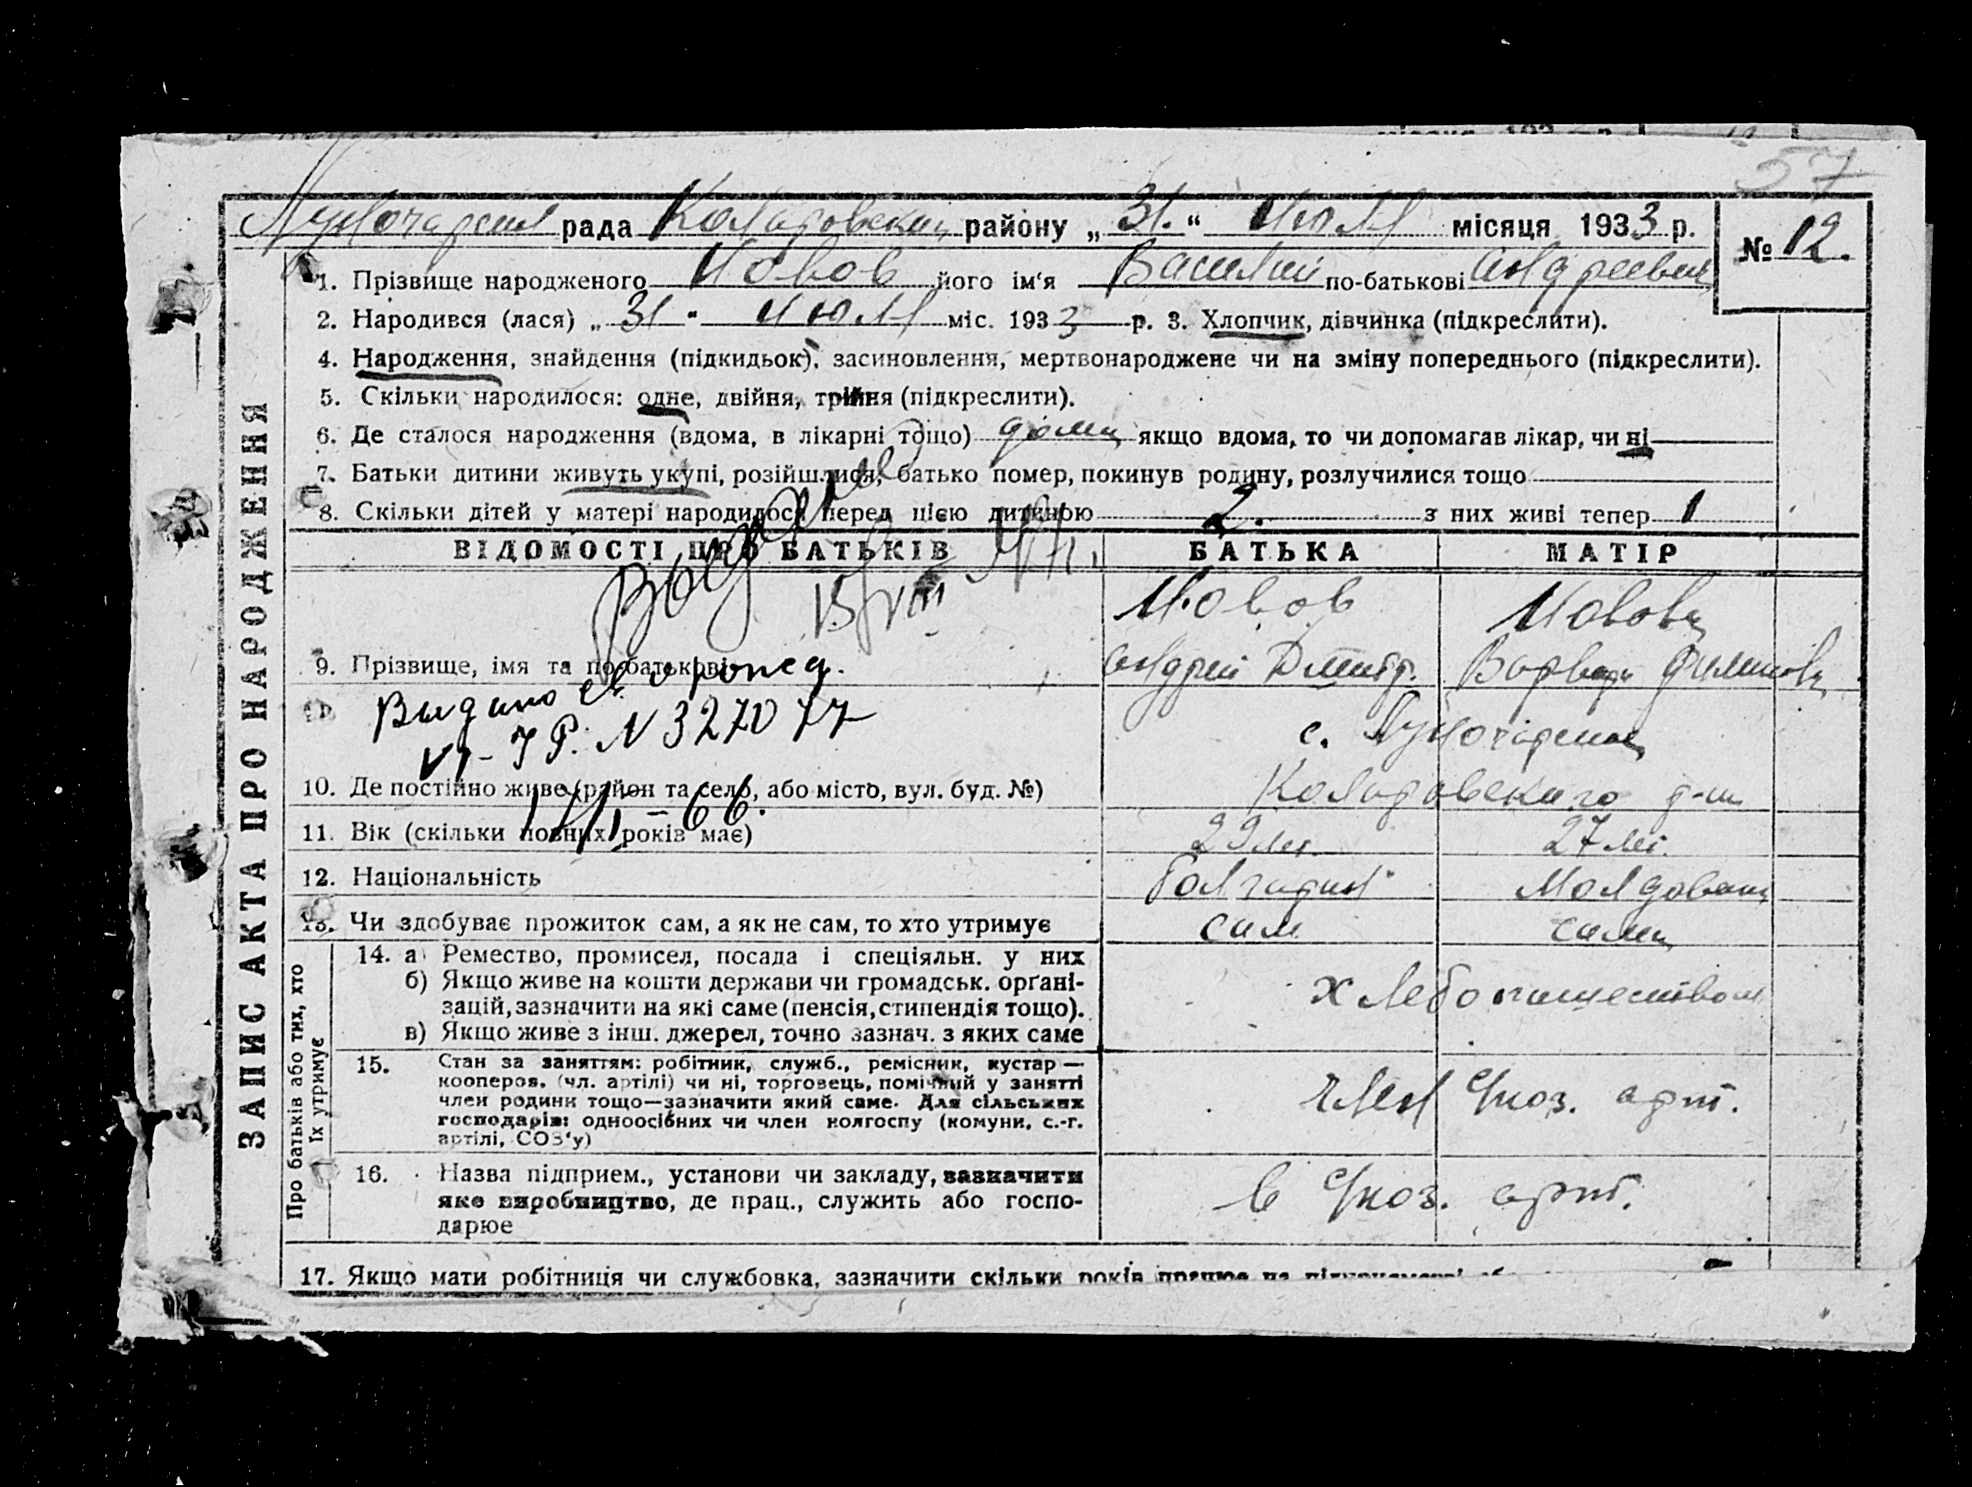 57
рада Коларовский району „31.“ Июля місяця 1933 р. № 12.
ЗАПИС АКТА ПРО НАРОДЖЕННЯ
1. Прізвище народженого Иовов його ім‘я Василий по-батькові Андреевич
2. Народився (лася) „31“ Июля міс. 1933 р. 3. Хлопчик, дівчинка (підкреслити).
4. Народження, знайдення (підкидьок), засиновлення, мертвонароджене чи на зміну попереднього (підкреслити).
5. Скільки народилося: одне, двійня, трійня (підкреслити).
6. Де сталося народження (вдома, в лікарні тощо) дома якщо вдома, то чи допомагав лікар, чи ні
7. Батьки дитини живуть укупі, розійшлися, батько помер, покинув родину, розлучилися тощо
8. Скільки дітей у матері народилося перед цією дитиною 2. з них живі тепер 1
ВІДОМОСТІ ПРО БАТЬКІВ БАТЬКА МАТІР
Иовов Иовова
9. Прізвище, імя та по батькові Андрей Дмитр. Варвара
Видано
№ 327077
с.
10. Де постійно живе (район та село, або місто, вул. буд. №) Коларовского р-на
66.
11. Вік (скільки повних років має) 29 лет. 27 лет.
12. Національність болгарин Молдован
13. Чи здобуває прожиток сам, а як не сам, то хто утримує сам сама
Про батьків або тих, хто їх утримує
14. а) Ремество, промисел, посада і спеціяльн. у них
б) Якщо живе на кошти держави чи громадськ. орґані-
зацій, зазначити на які саме (пенсія, стипендія тощо).
в) Якщо живе з інш. джерел, точно зазнач. з яких саме
хлебопашеством
15. Стан за заняттям: робітник, служб., ремісник, кустар—
коопероя. (чл. артілі) чи ні, торговець, помічний у занятті
член родини тощо—зазначити який саме. Для сільських
господарів: одноосібних чи член колгоспу (комуни, с.-г.
артілі, СОЗ‘у)
член арт.
16. Назва підприєм., установи чи закладу, зазначити
яке виробництво, де прац., служить або госпо-
дарює
в арт.
17. Якщо мати робітниця чи службовка, зазначити скільки років працює на